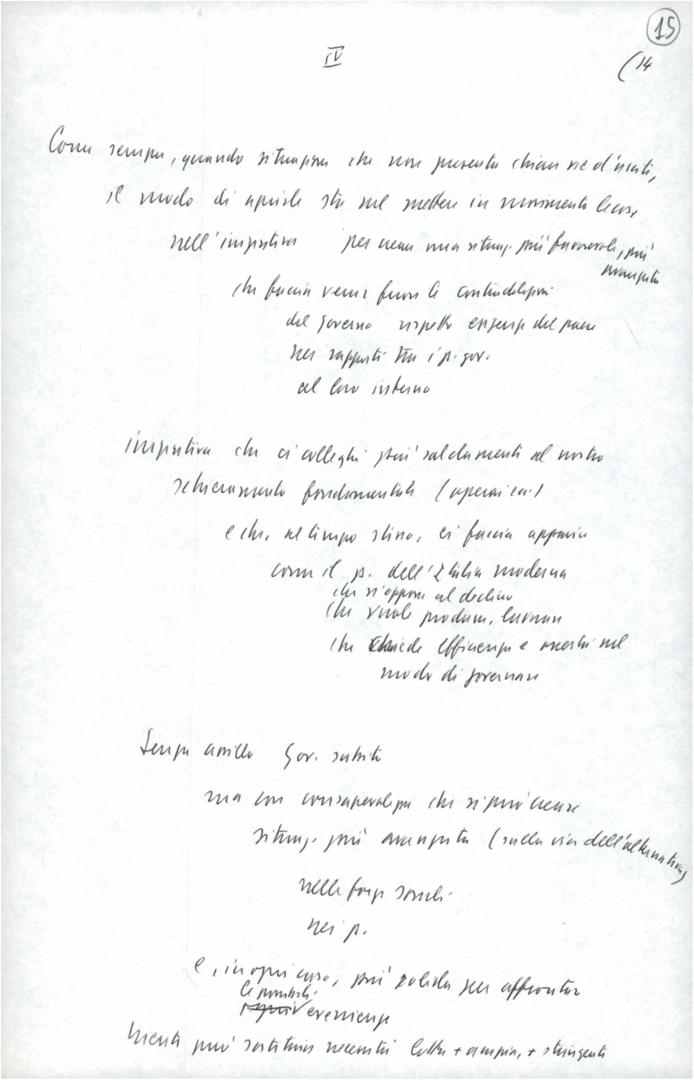 15
IV
(14
Come sempre, quando situazione che non presenta chiare vie d'uscita,
il modo di aprirle sta nel mettere in movimento le cose
nell'iniziativa per creare una situaz. più favorevole, più
avanzata
che faccia venir fuori le contraddizioni
del governo rispetto esigenze del paese
nei rapporti tra i p. gov.
al loro interno
iniziativa che ci colleghi più saldamente al nostro
schieramento fondamentale (operai ecc.)
e che, nel tempo stesso, ci faccia apparire
come il p. dell'Italia moderna
che si oppone al declino
che vuole produrre, lavorare
che chiede efficienza e onestà nel
modo di governare
Senza assillo Gov. subito
ma con consapevolezza che si può creare
situaz. più avanzata (sulla via dell'alternativa)
nelle forze sociali
nei p.
e, in ogni caso, più solida per affrontare
le possibili
evenienze
Niente può sostituire necessità lotta + ampia, + stringente